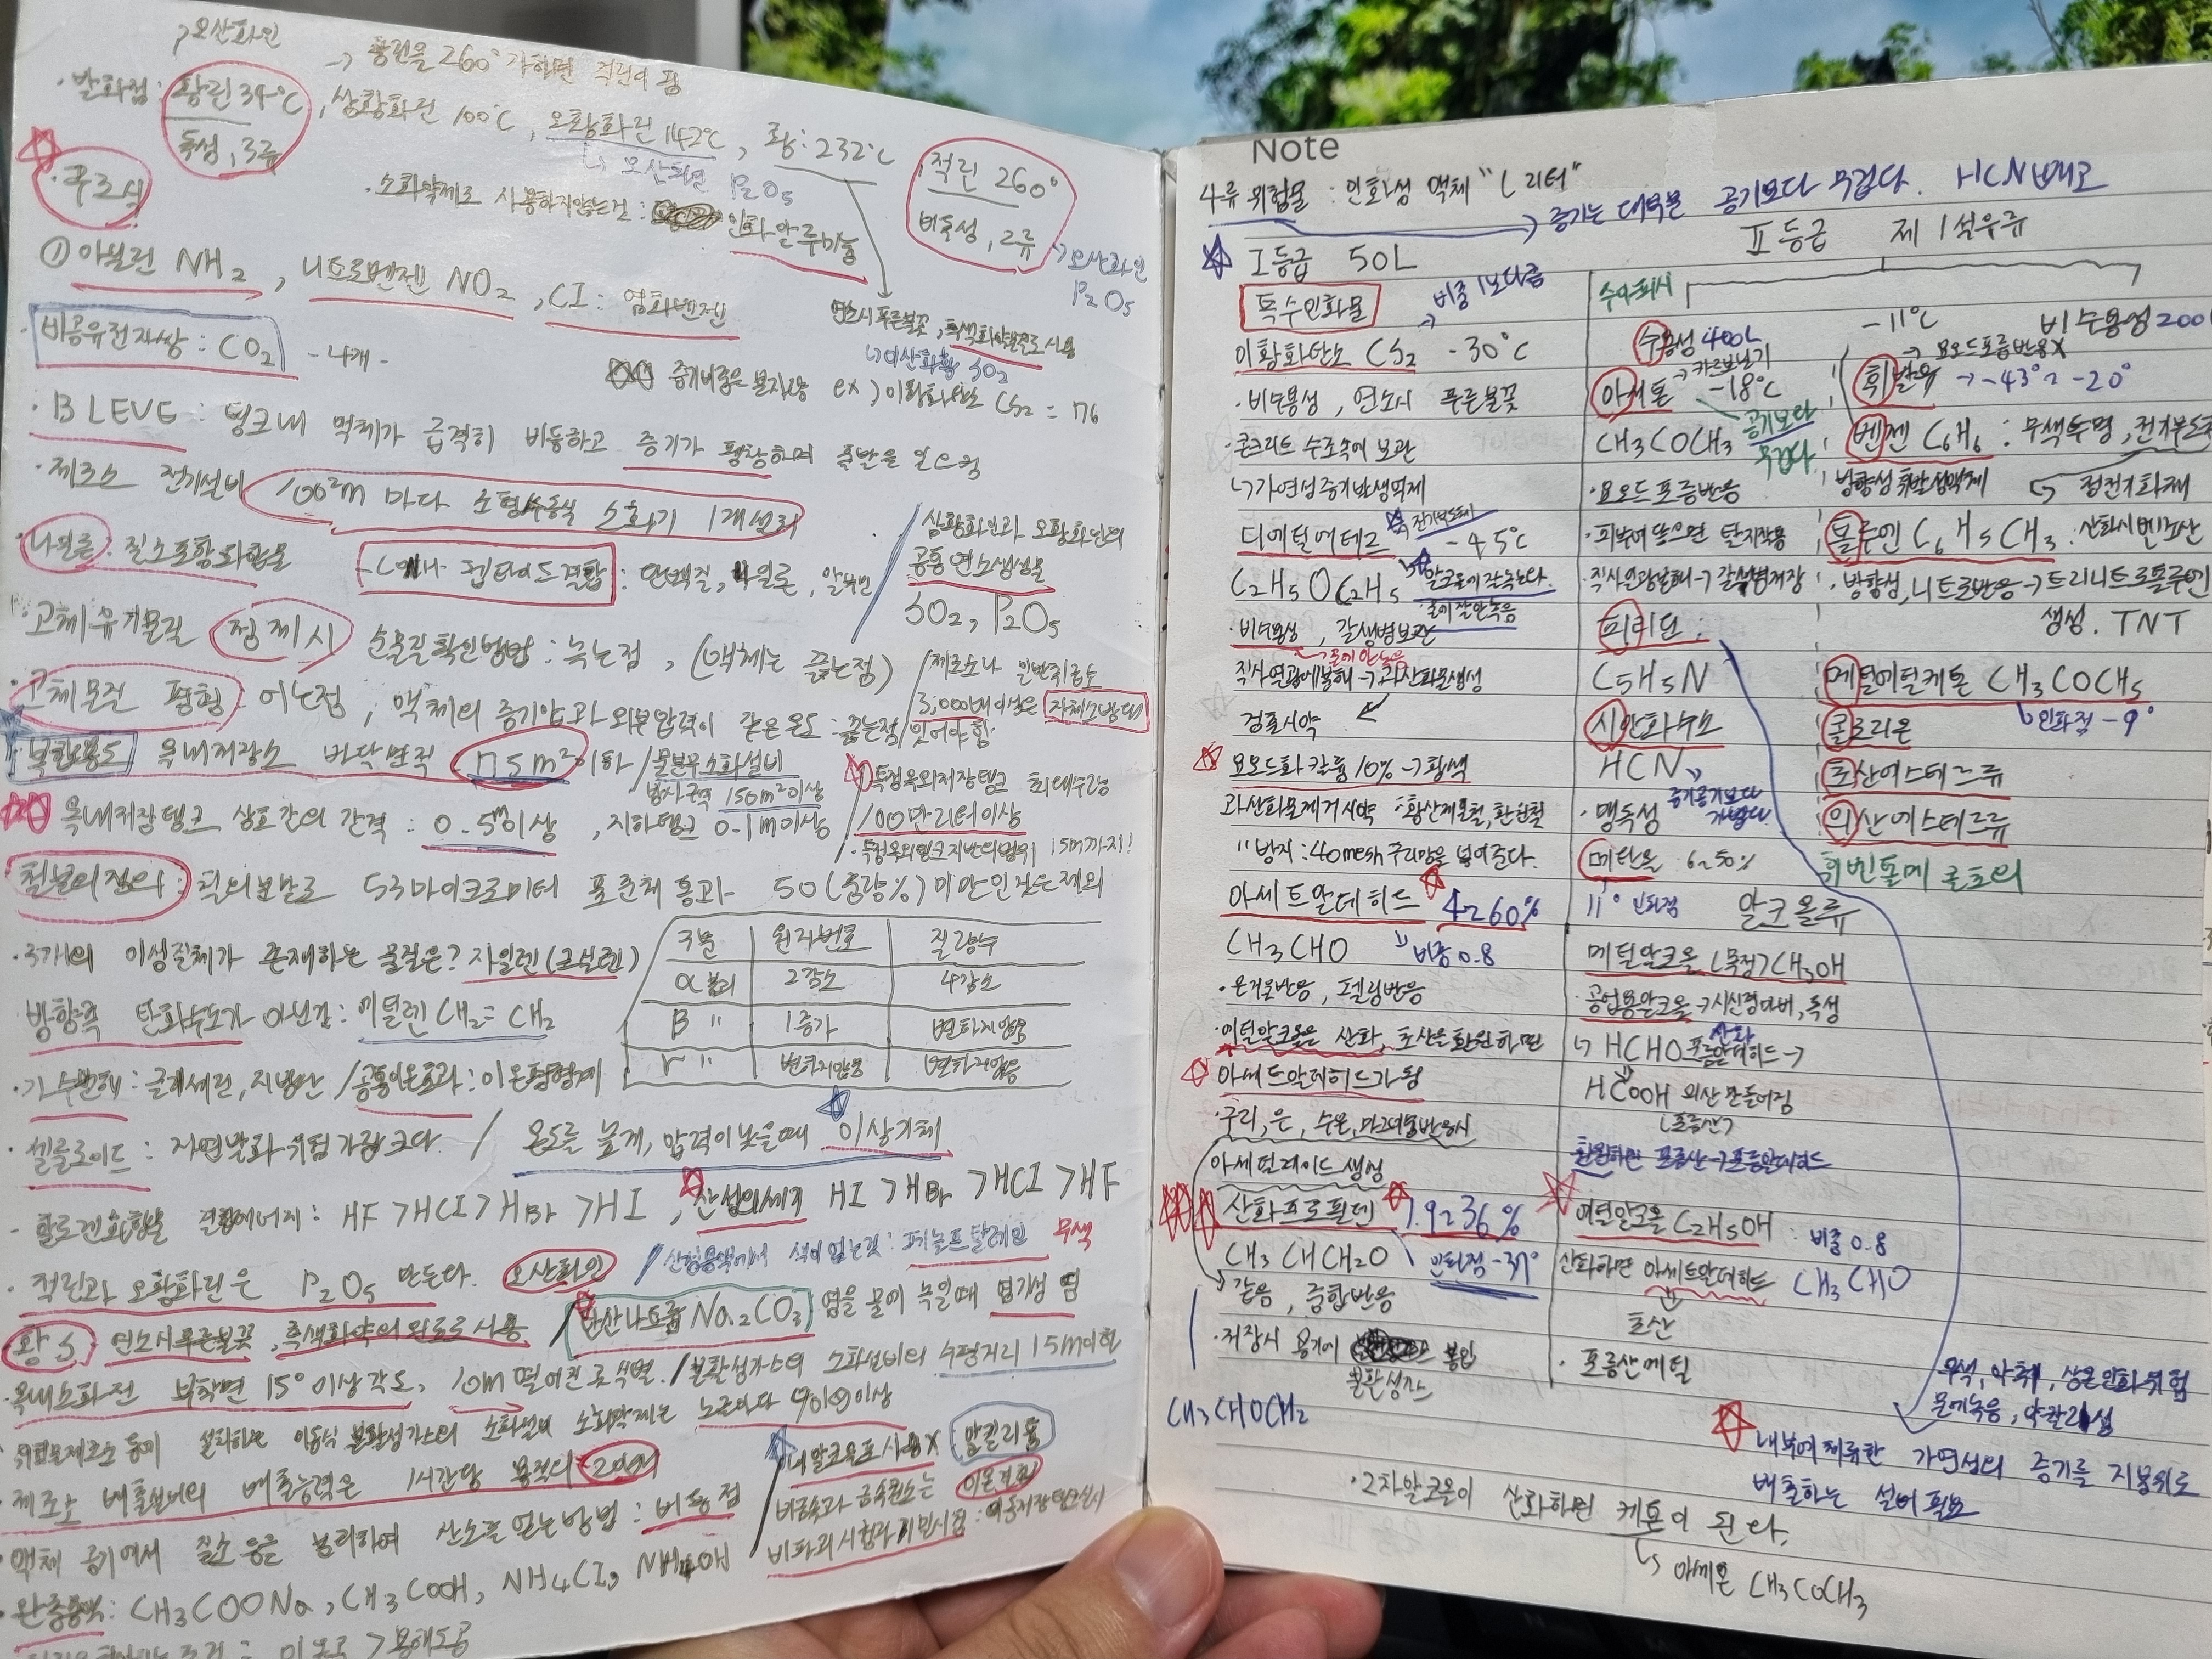 →오산화인
→ 황린을 260° 가하면 적린이 됨
·발화점: 황린 34°C, 삼황화린 100°C, 오황화린 142°C, 황: 232°C
독성, 3류
↳ 오산화인 P2O5
적린 260°
비독성, 2류
→오산화인 P2O5
·구조식
·소화약제로 사용하지않는건: 인화알루미늄
① 아닐린 NH2, 니트로벤젠 NO2, Cl: 염화벤젠
연소시 푸른불꽃, 흑색화약원료로 사용
↳이산화황 SO2
·비공유전자쌍: CO2 -4개-
증기비중은 분자량 ex) 이황화탄소 CS2 = 76
·BLEVE: 탱크내 액체가 급격히 비등하고 증기가 팽창하며 폭발을 일으킴
·제조소 전기설비 100²m 마다 소형수동식 소화기 1개설치
·나일론: 질소포함화합물
펩타이드결합: 단백질, 나일론, 알부민
삼황화인과 오황화인의
공통 연소생성물
SO2, P2O5
·고체유기물질 정제시 순물질확인방법: 녹는점, (액체는 끓는점)
·고체물질 평형: 어는점, 액체의 증기압과 외부압력이 같은 온도: 끓는점
/제조소나 일반취급소
3,000배이상은 자체소방대
있어야함.
복합용도 옥내저장소 바닥면적 75m² 이하 /물분무소화설비
방사구역 150m²이상
옥내저장탱크 상호간의 간격: 0.5m이상, 지하탱크 0.1m이상
특정옥외저장탱크 최대수량
100만리터이상
·특정옥외탱크지반의범위 15m까지!
철분의정의: 철의분말로 53마이크로미터 표준체 통과 50(중량%) 미만인것은제외
·3개의 이성질체가 존재하는 물질은? 자일렌(크실렌)
구분 원자번호 질량수
α붕괴 2감소 4감소
B " 1증가 변하지않음
r " 변하지않음 변하지않음
방향족 탄화수소가 아닌것: 에틸렌 CH2=CH2
·가수분해: 글리세린, 지방산 /공통이온효과: 이온평형계
·셀룰로이드: 자연발화위험가장크다. / 온도를 높게, 압력이낮을때 이상기체
-할로겐화합물 결합에너지: HF>HCl>HBr>HI, 산성의세기 HI>HBr>HCl>HF
·적린과 오황화린은 P2O5 만든다. 오산화인
/산성용액에서 색이 없는것: 페놀프탈레인 무색
황S 연소시푸른불꽃, 흑색화약의원료로사용 /탄산나트륨 Na2CO3 염을 물에 녹일때 염기성 염
·옥내소화전 부착면 15°이상각도, 10m떨어진곳식별. /불활성가스의 소화설비의 수평거리 15m이하
·위험물제조소등에 설치하는 이동식 불활성가스의 소화설비 소화약제는 노즐마다 90kg이상
·제조소 배출설비의 배출능력은 1시간당 용적의 20배
·내알코올포사용X 알킬리튬
비금속과 금속원소는 이온결합
·액체 공기에서 질소 등을 분리하여 산소를 얻는방법: 비등점
·완충용액: CH3COONa, CH3COOH, NH4Cl, NH4OH
Note
4류 위험물: 인화성 액체 "L 리터"
→증기는 대부분 공기보다 무겁다. HCN빼고
Ⅰ등급 50L
특수인화물
→ 비중 1보다큼
이황화탄소 CS2 -30°C
·비수용성, 연소시 푸른불꽃
·콘크리트 수조속에 보관
↳가연성증기발생억제
디에틸에테르 -45°C
전기부도체
C2H5OC2H5
알코올에 잘녹는다.
물에 잘안녹음
·비수용성, 갈색병보관
→물에 안녹음
직사열광에분해→과산화물생성
검출시약
요오드화칼륨 10%→황색
과산화물제거시약: 황산제1철, 환원철
"방지: 40mesh 구리망을 넣어준다.
아세트알데히드 4260%
CH3CHO 비중 0.8
·은거울반응, 펠링반응
·에틸알코올은 산화, 초산을환원하면
아세트알데히드가됨
·구리, 은, 수은, 마그네슘반응시
아세틸레이드 생성
산화프로필렌 1.9236%
CH3CHCH2O 인화점 -37°
같음, 중합반응
·저장시 용기에 봉입
불활성가스
CH3CHOCH2
Ⅱ등급 제1석유류
수아피시
수용성 400L
아세톤 -18°C
→카르보닐기
CH3COCH3
공기보다
무겁다
·요오드포름반응
·피부에닿으면 탈지작용
·직사일광분해→갈색병저장
피리딘:
C5H5N
시안화수소
HCN
·맹독성
증기공기보다
가볍다.
메탄올 6250%
11° 인화점
-11°C 비수용성200L
→요오드포름반응X
휘발유 →-43°2 -20°
벤젠 C6H6: 무색투명, 전기부도체
방향성휘발성액체 ↳ 정전기화재
톨루엔 C6H5CH3. 산화시벤조산
·방향성, 니트로반응→트리니트로톨루엔
생성. TNT
메틸에틸케톤 CH3COCH5
↳인화점 -9°
콜로디온
초산에스테르류
의산에스테르류
휘벤톨메 콜초의
알코올류
메틸알코올 (목정) CH3OH
·공업용알코올→시신경마비, 독성
산화
↳ HCHO 포름알데히드→
HCOOH 의산만들어짐
(포름산)
환원하면 포름산→포름알데히드
에틸알코올 C2H5OH: 비중 0.8
산화하면 아세트알데히드 CH3CHO
초산
·포름산메틸
무색, 악취, 상온인화위험
물에녹음, 약알칼리성
내부에체류한 가연성의 증기를 지붕위로
배출하는 설비 필요
·2차알코올이 산화하면 케톤이 된다.
↳아세톤 CH3COCH3